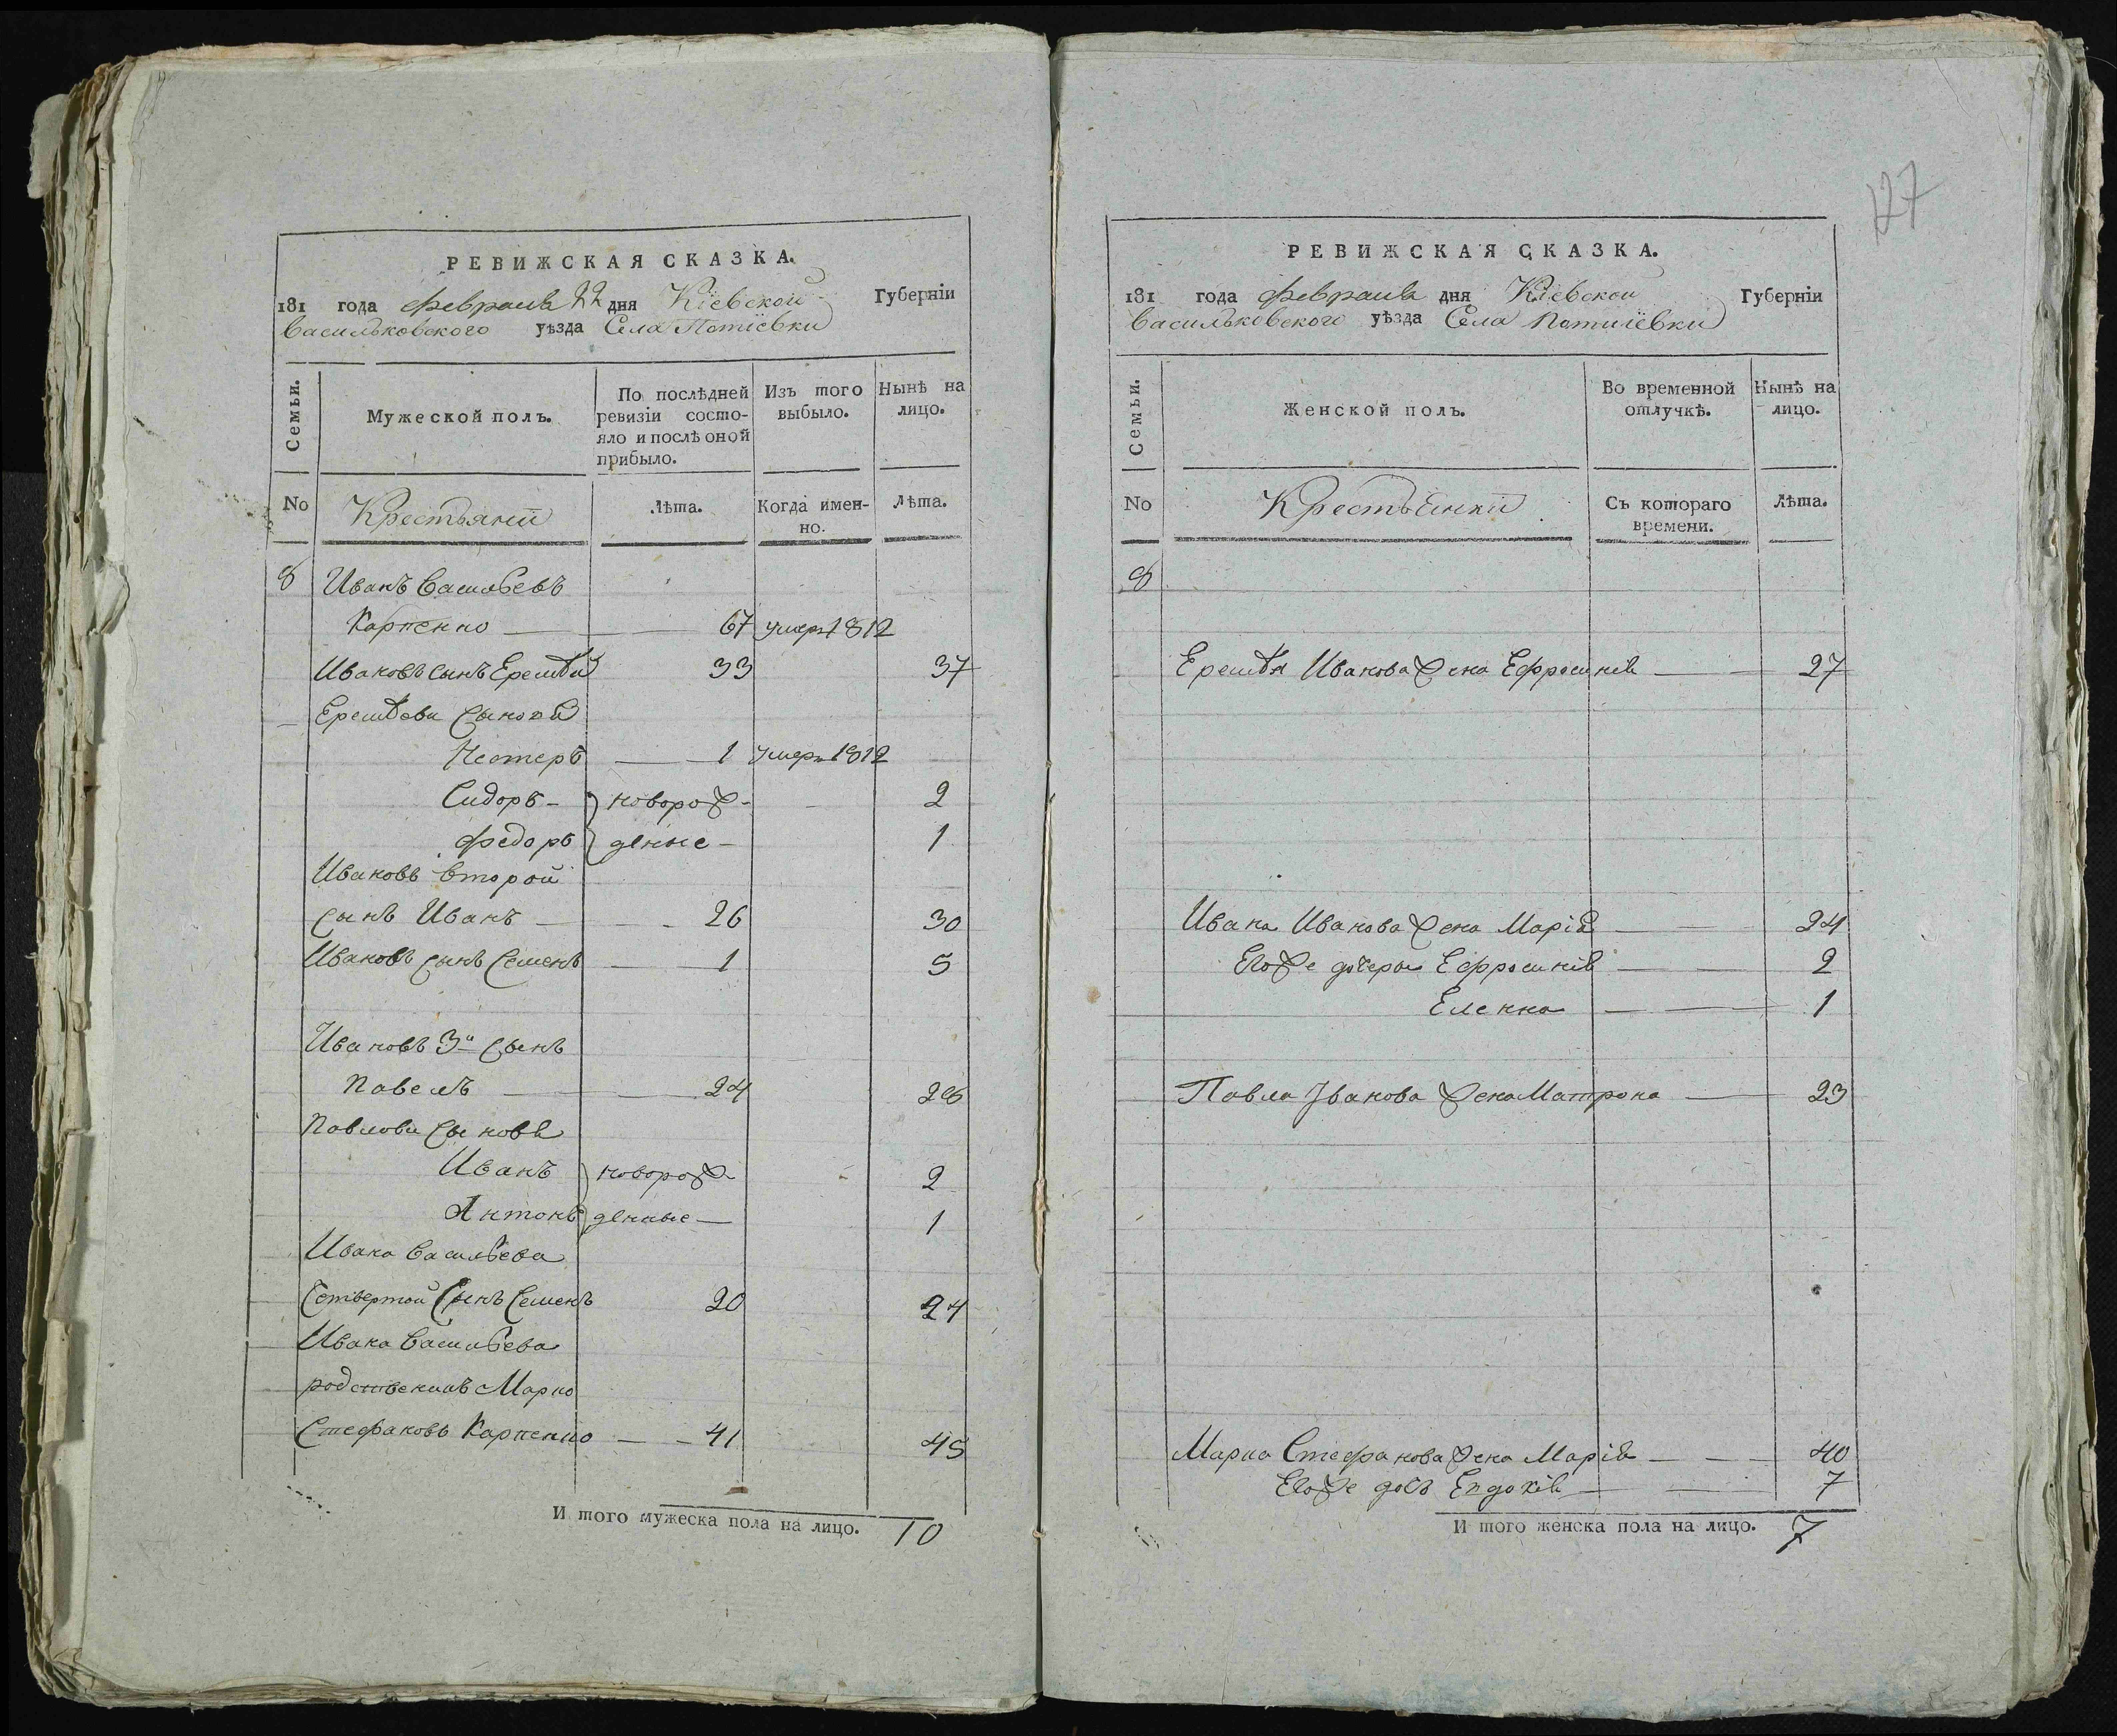 РЕВИЖСКАЯ СКАЗКА.
181 года февраля 22 дня Кіевской Губерніи
Васильковского уѣзда Села Потіевки
Семьи.
Мужеской полъ.
По послѣдней ревизіи состо-
яло и послѣ оной
прибыло.
Изъ того выбыло.
Нынѣ на лицо.
No
Крестьяни
Лѣта.
Когда имен-
но.
Лѣта.
8 Иванъ Васильевъ
Карпенко 67 умре 1812
Ивановъ сынъ Еремѣй 33 37
Еремѣеви Сынови
Нестеръ 1 умре 1812
Сидоръ новорож- 2
Федоръ денные 1
Ивановъ второй
сынъ Иванъ 26 30
Ивановъ сынъ Семенъ 1 5
Ивановъ 3й Сынъ
Павелъ 24 28
Павлови Сынови
Иванъ новорож- 2
Антонъ денные 1
Ивана Васильева
Четвертой Сынъ Семенъ 20 24
Ивана Васильева
родственикъ Марко
Стефановъ Карпенко 41 45
И того мужеска пола на лицо. 10
127
РЕВИЖСКАЯ СКАЗКА.
181 года февраля дня Кіевской Губерніи
Васильковского уѣзда Села
Семьи.
Женской полъ.
Во временной отлучкѣ.
Нынѣ на лицо.
No
Крестьянки
Съ котораго
времени.
Лѣта.
8
Еремѣя Иванова жена Ефросинія 27
Ивана Иванова жена Марія 24
Егоже дочеры Ефросинія 2
Еленна 1
Павла Іванова жена Матрона 23
Марка Стефанова жена Марія 40
Егоже дочъ Евдокія 7
И того женска пола на лицо. 7